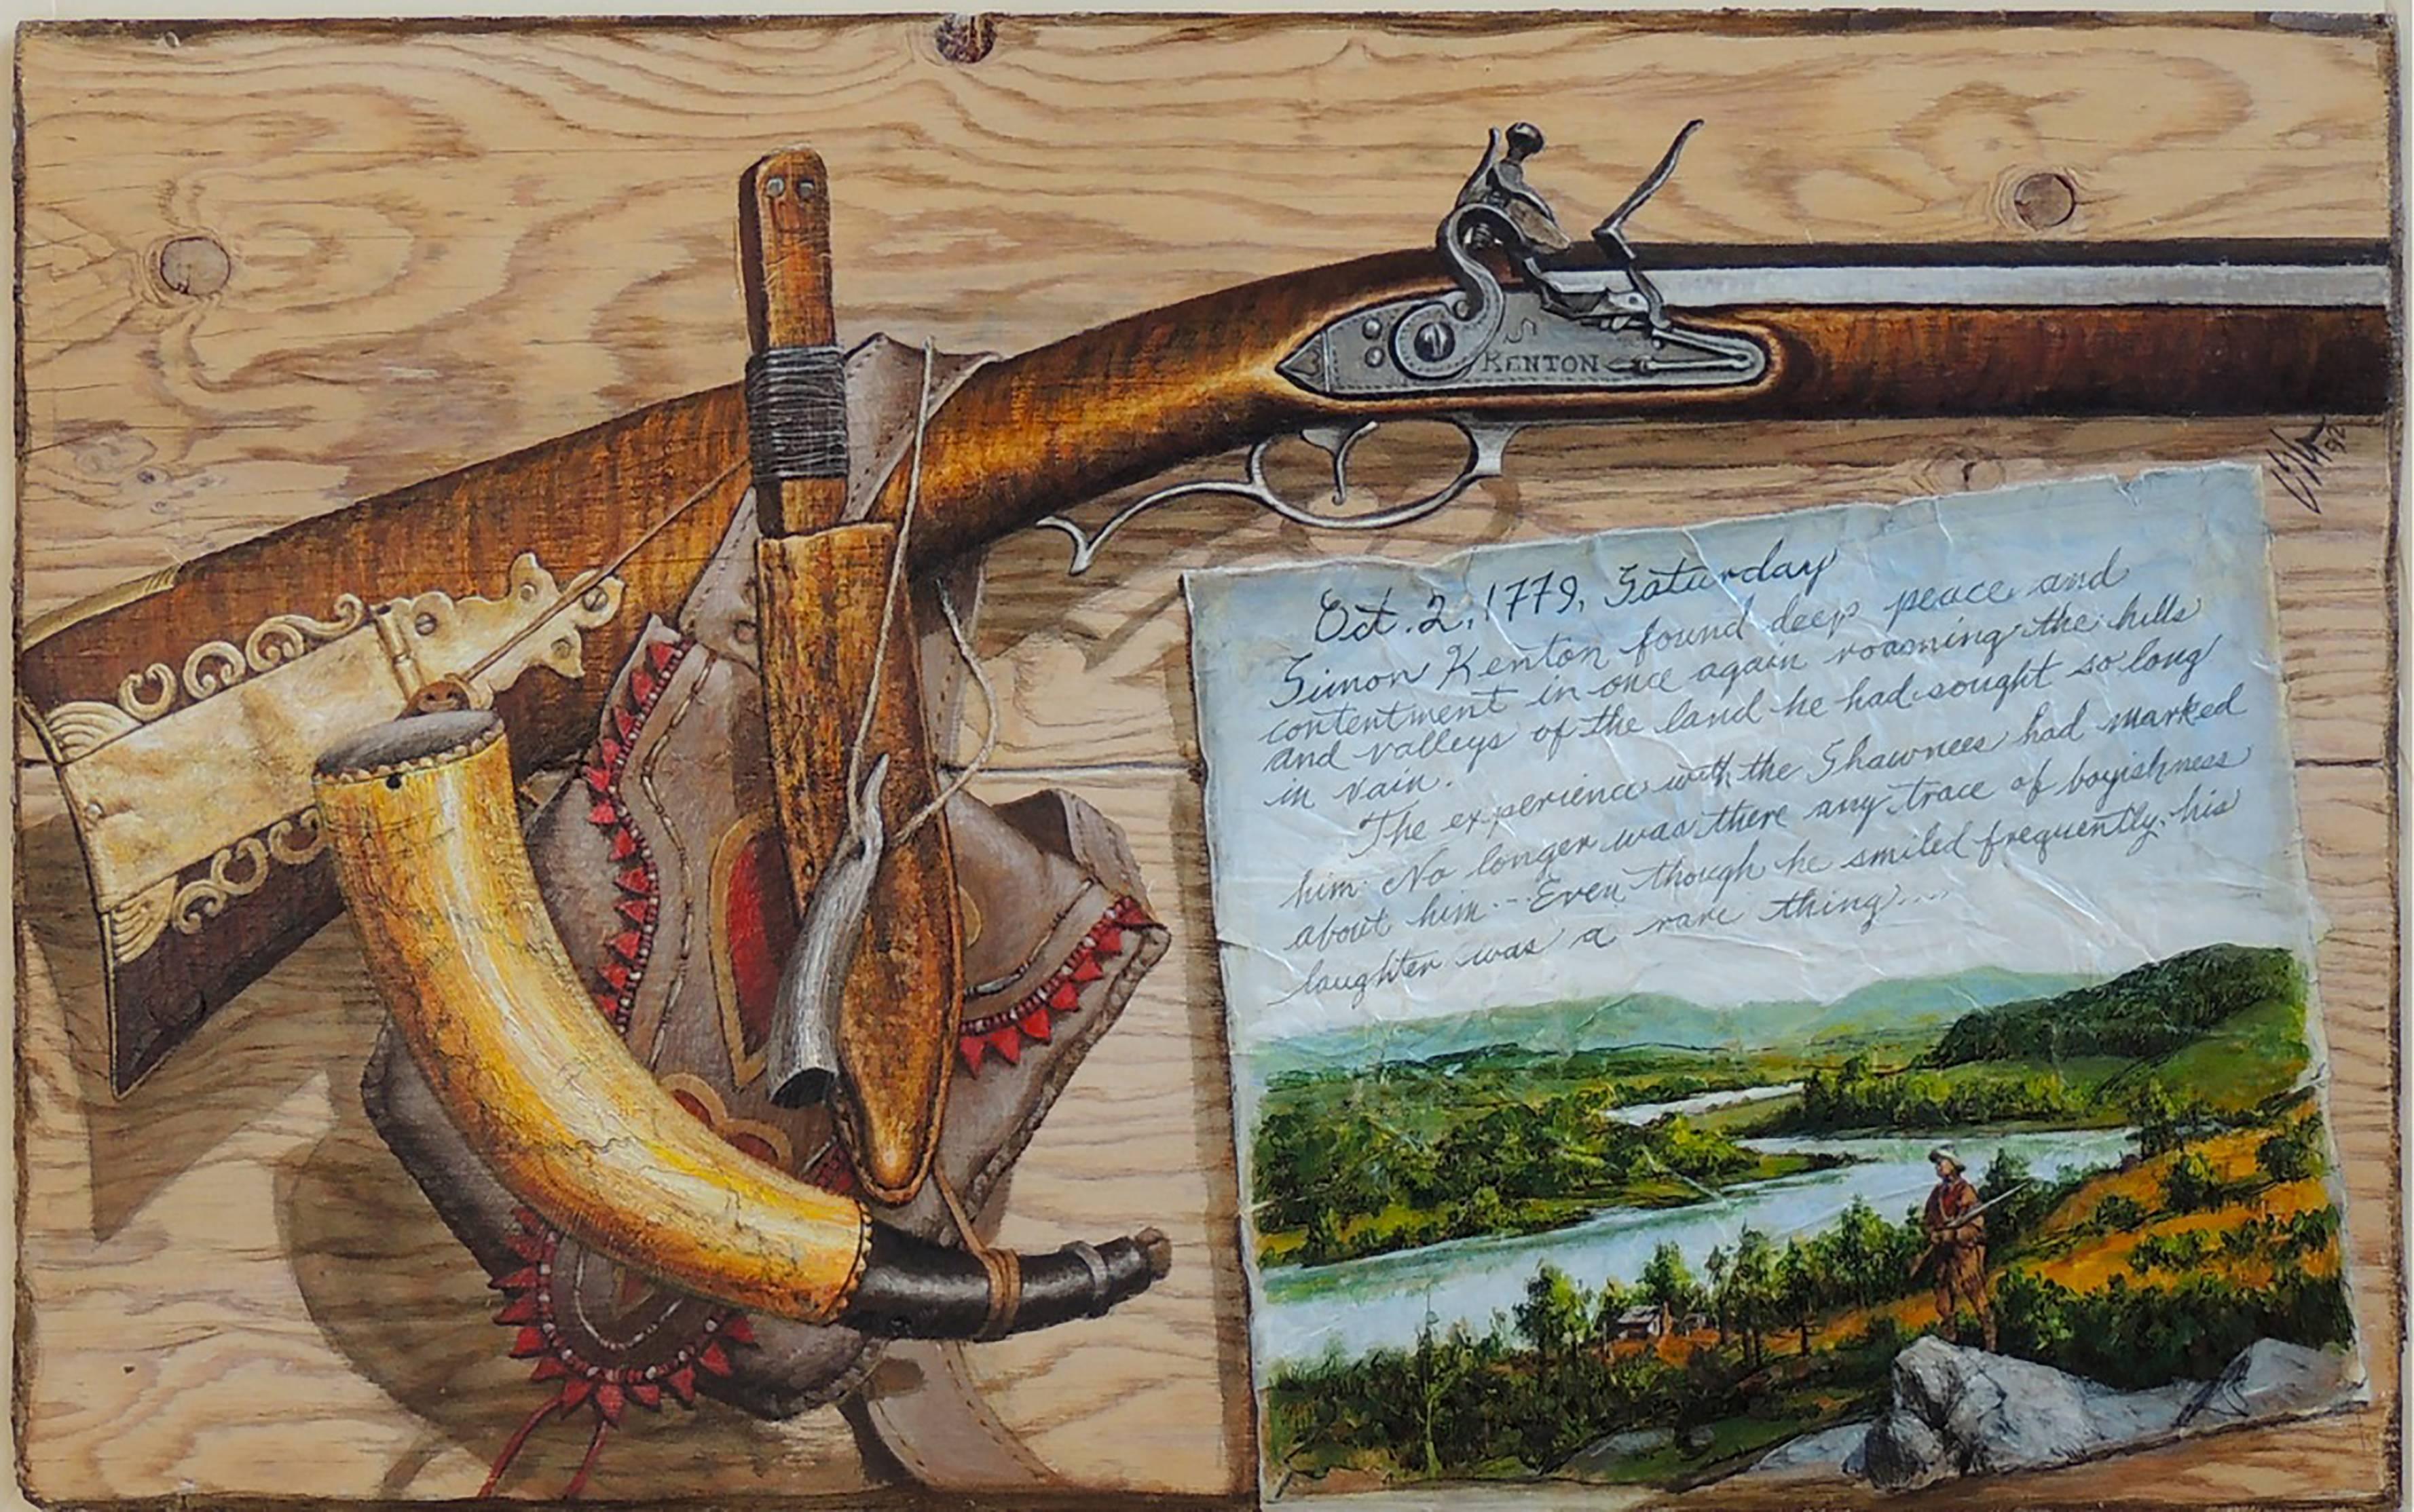 S
KENTON
Oct. 2, 1779, Saturday
Simon Kenton found deep peace and
contentment in once again roaming the hills
and valleys of the land he had sought so long
in vain.
The experience with the Shawnees had marked
him. No longer was there any trace of boyishness
about him... Even though he smiled frequently, his
laughter was a rare thing....
92